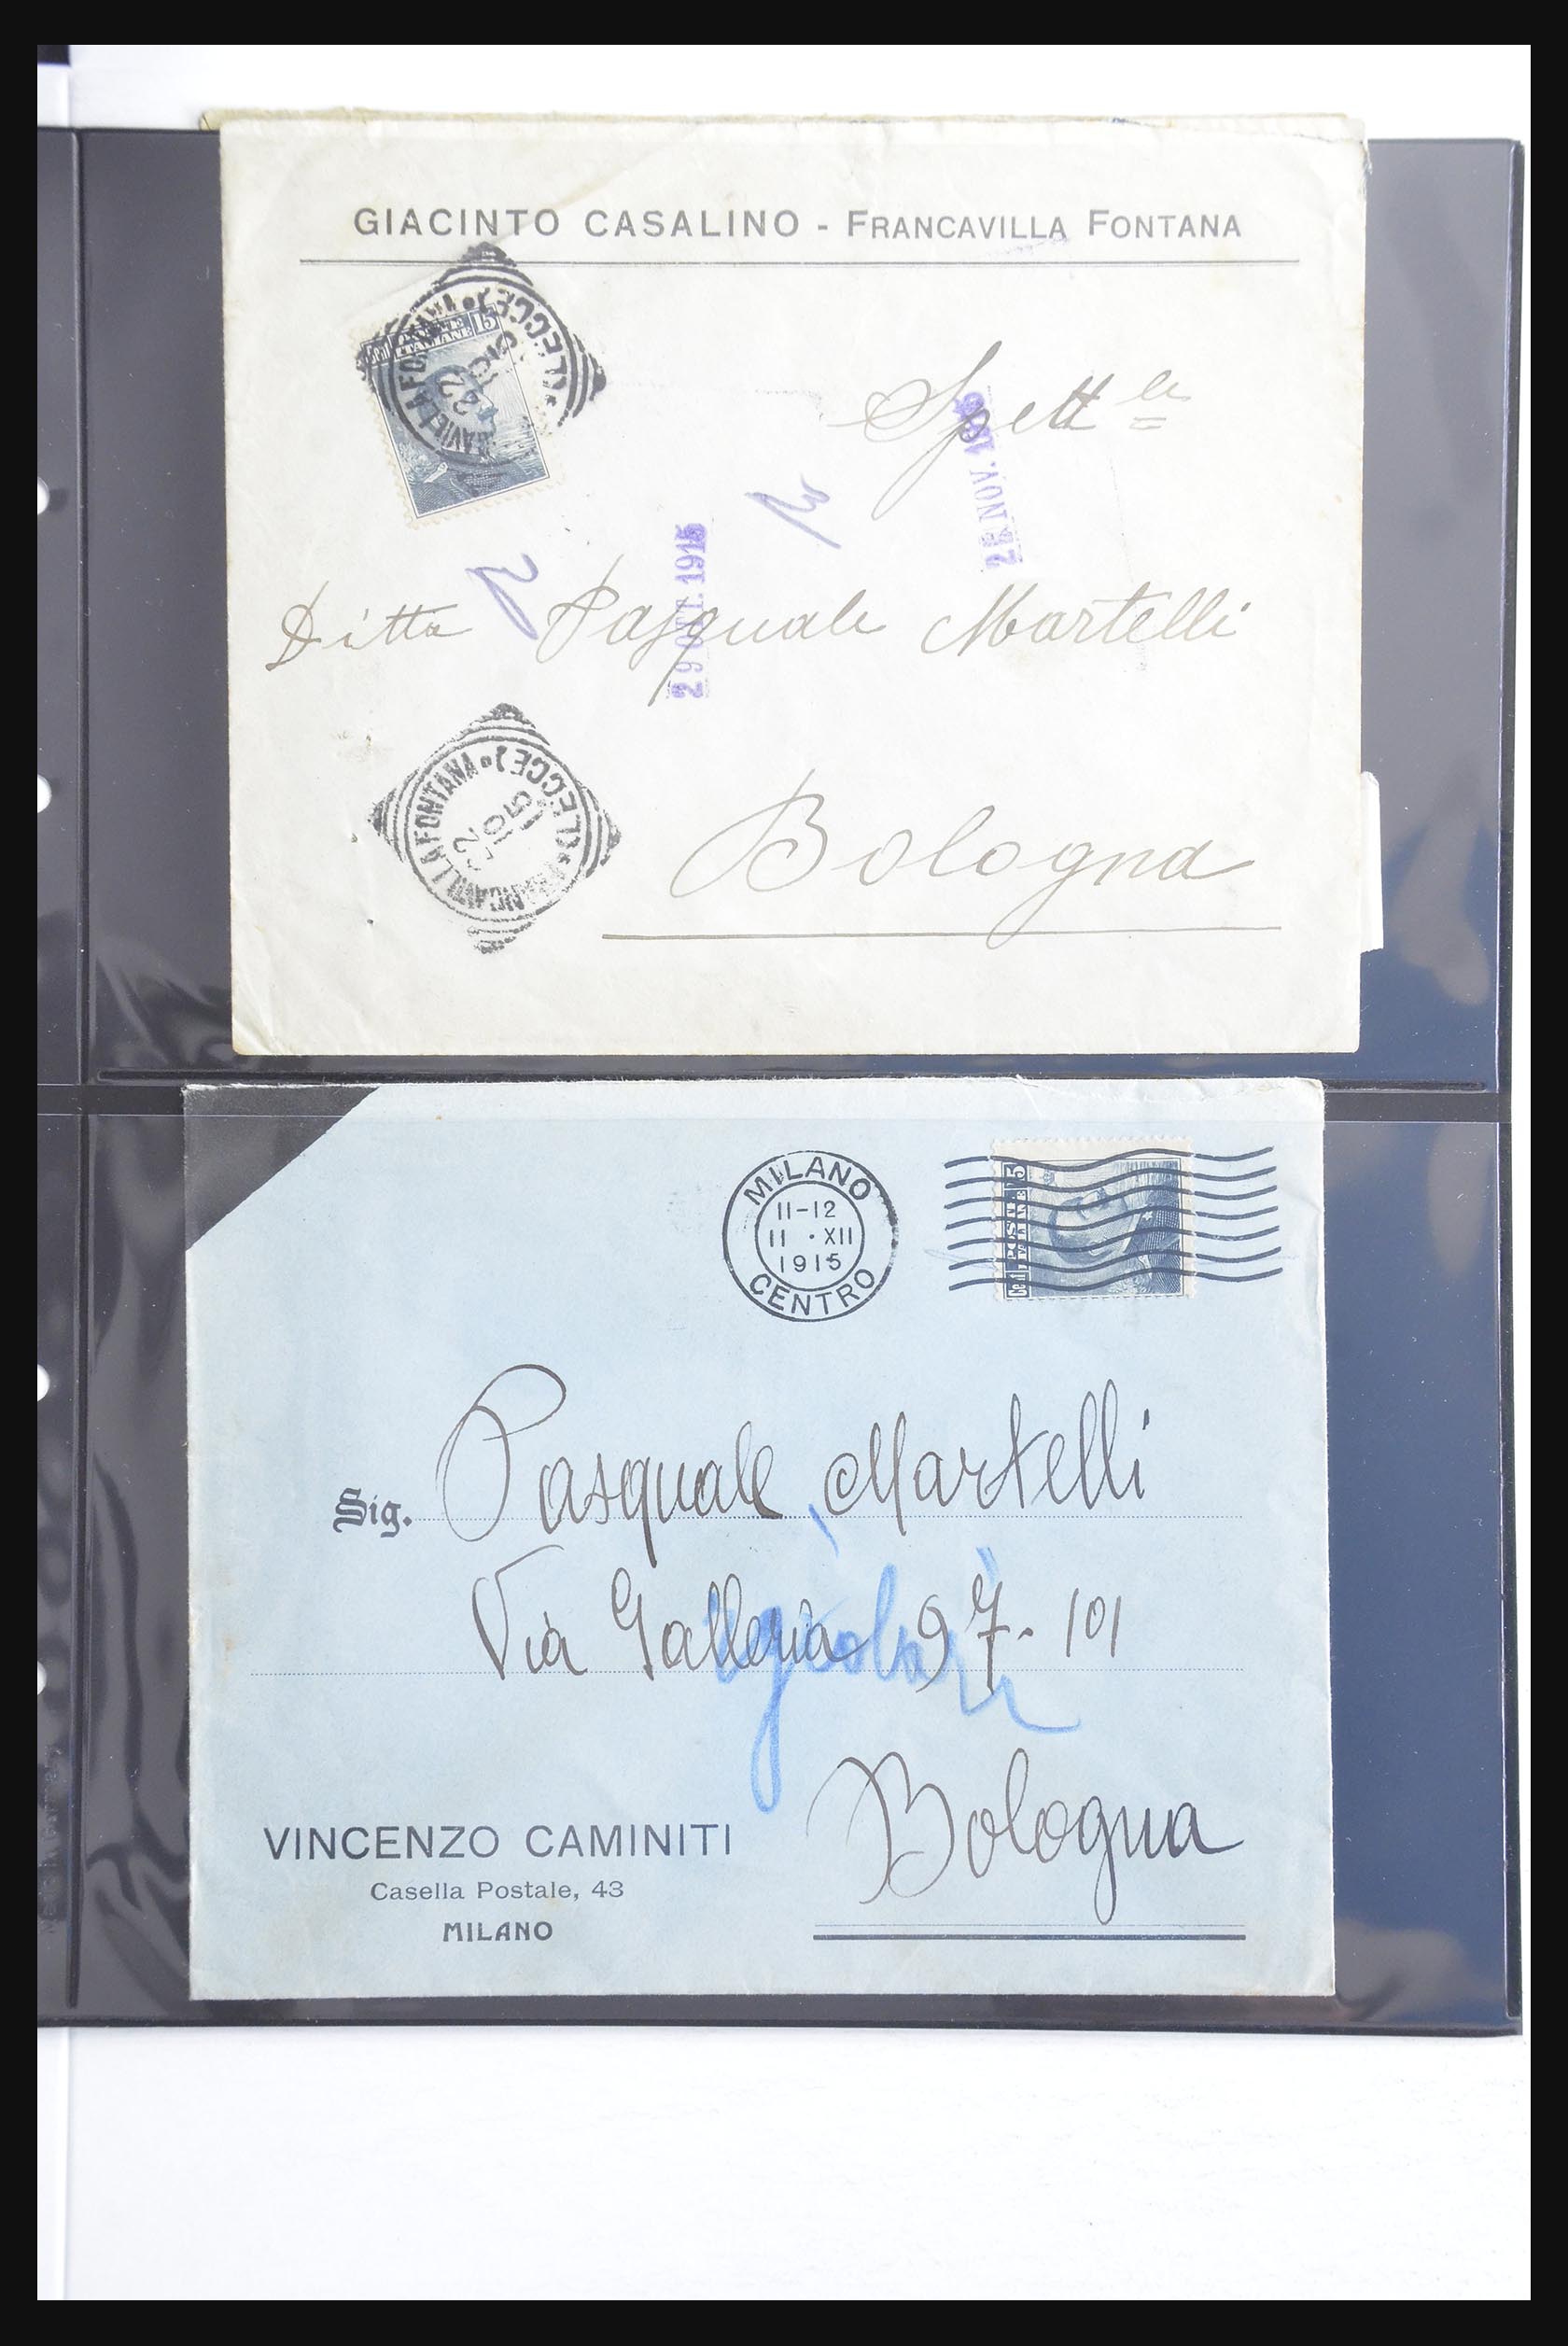 GIACINTO CASALINO - FRANCAVILLA FONTANA
Cent. POSTE ITALIANE 15
(LECCE)
22 10 15
Spett.le
28 NOV. 1915
29 OTT. 1915
Ditta Pasquale Martelli
FRANCAVILLA FONTANA • (LECCE)
22
10
15
Bologna
MILANO
11-12
11 • XII
1915
CENTRO
Cent. POSTE ITALIANE 15
Sig. Pasquale Martelli
Via Galleria 97-101
Bologna
VINCENZO CAMINITI
Casella Postale, 43
MILANO